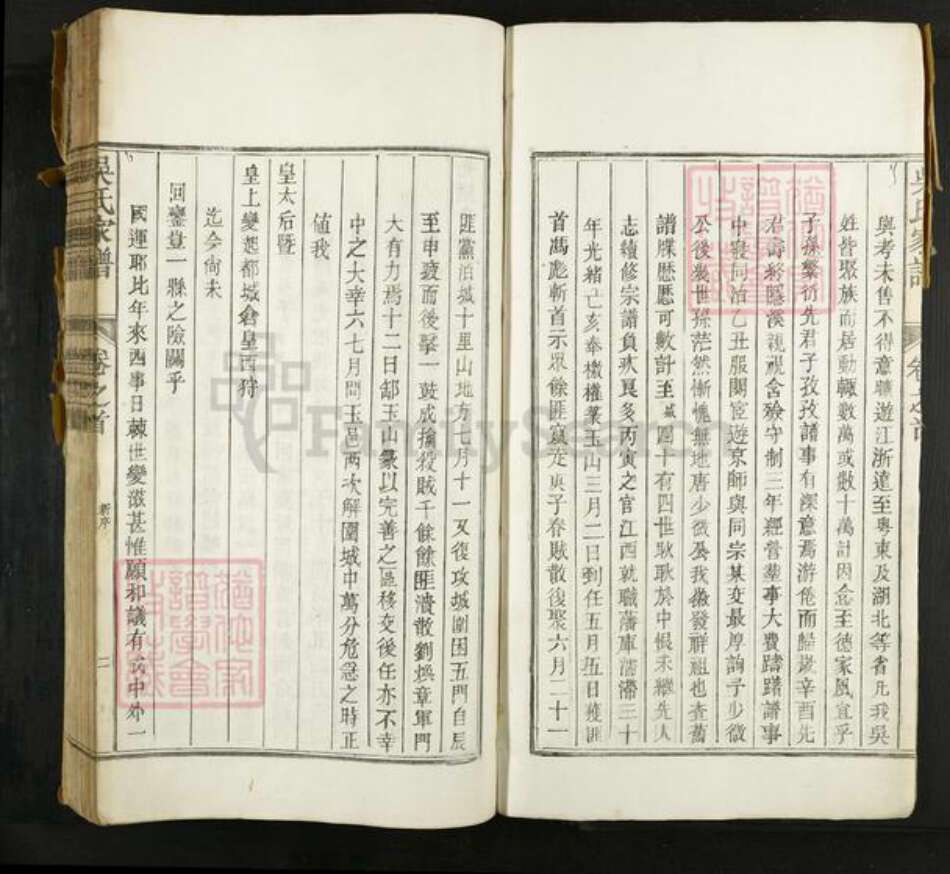 與考未售不得意曠遊江浙遠至粵東及湖北等省凡我吳
姓皆聚族而居動輒數萬或數十萬計因念至德家風宜乎
子孫繁衍先君子孜孜譜事有深意焉游倦而歸歲辛酉先
君壽終隱溪親視含殮守制三年經營塋事大費躊躇譜事
中寢同治乙丑服闋宦遊京師與同宗某交最厚詢予少微
公後幾世孫茫然慚愧無地唐少微公我徽發祥祖也查舊
譜牒歷歷可數計至 團十有四世耿耿於中恨未繼先人
志續修宗譜負疚良多丙寅之官江西就職藩庫濡滯三十
年光緒己亥奉檄權篆玉山三月二日到任五月五日獲匪
首馮彪斬首示眾餘匪竄走庚子春賊散復聚六月二十一
匪黨泊城十里山地方七月十一又復攻城圍困五門自辰
至申疲而後擊一鼓成擒殺賊千餘餘匪潰散劉煥章軍門
大有力焉十二日卸玉山篆以完善之區移交後任亦不幸
中之大幸六七月間玉邑两次解圍城中萬分危急之時正
値我
皇太后暨
皇上變起都城倉皇西狩
迄今尙未
回鑾豈一縣之險關乎
國運耶比年來西事日棘世變滋甚惟願和議有成中外一
吳氏家譜
卷之首
新序
二
吳氏家譜
卷之首
FamilySearch